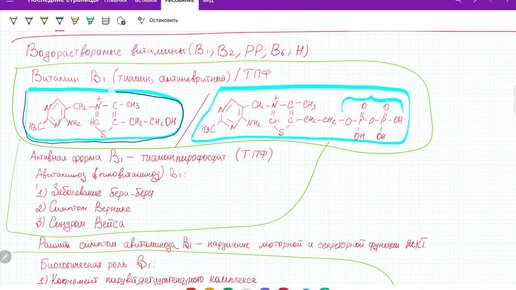 Последние страницы Главная Вставка Рисование Вид
Остановить
Водорастворимые витамины (B₁, B₂, PP, B₆, H)
Витамин B₁ (тиамин, антиневритный) / ТПФ
Активная форма B₁ – тиаминпирофосфат (ТПФ)
Авитаминоз (гиповитаминоз) B₁:
1) Заболевание бери-бери
2) Симптом Вернике
3) Синдром Вейса
Ранний симптом авитаминоза B₁ – нарушение моторной и секреторной функции ЖКТ.
Биологическая роль B₁:
1) Кофермент пируватдегидрогеназного комплекса